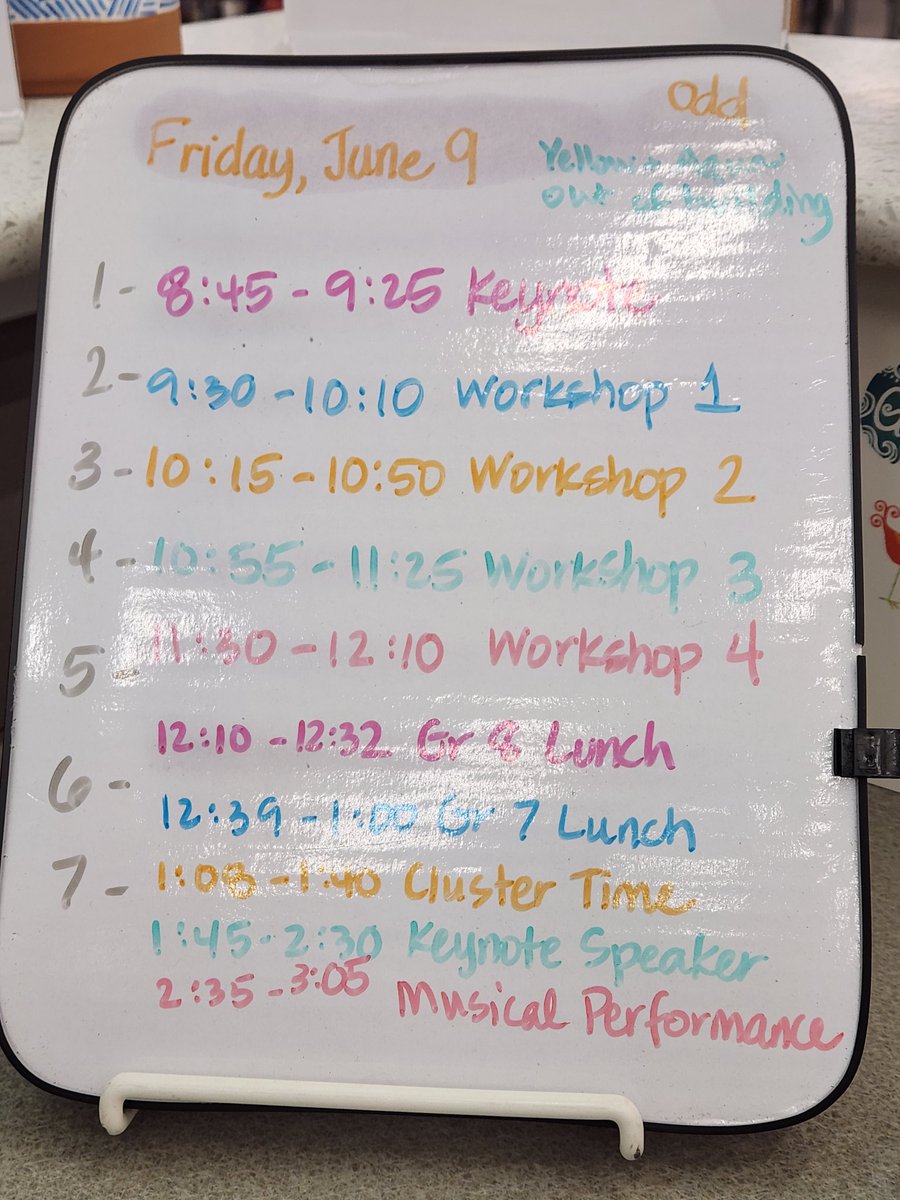 Odd
Friday, June 9
out of building
1- 8:45 - 9:25 Keynote
2- 9:30 - 10:10 Workshop 1
3- 10:15 - 10:50 Workshop 2
4- 10:55 - 11:25 Workshop 3
5- 11:30 - 12:10 Workshop 4
12:10 - 12:32 Gr 8 Lunch
6-
12:39 - 1:00 Gr 7 Lunch
7- 1:08 - 1:40 Cluster Time
1:45 - 2:30 Keynote Speaker
2:35 - 3:05 Musical Performance